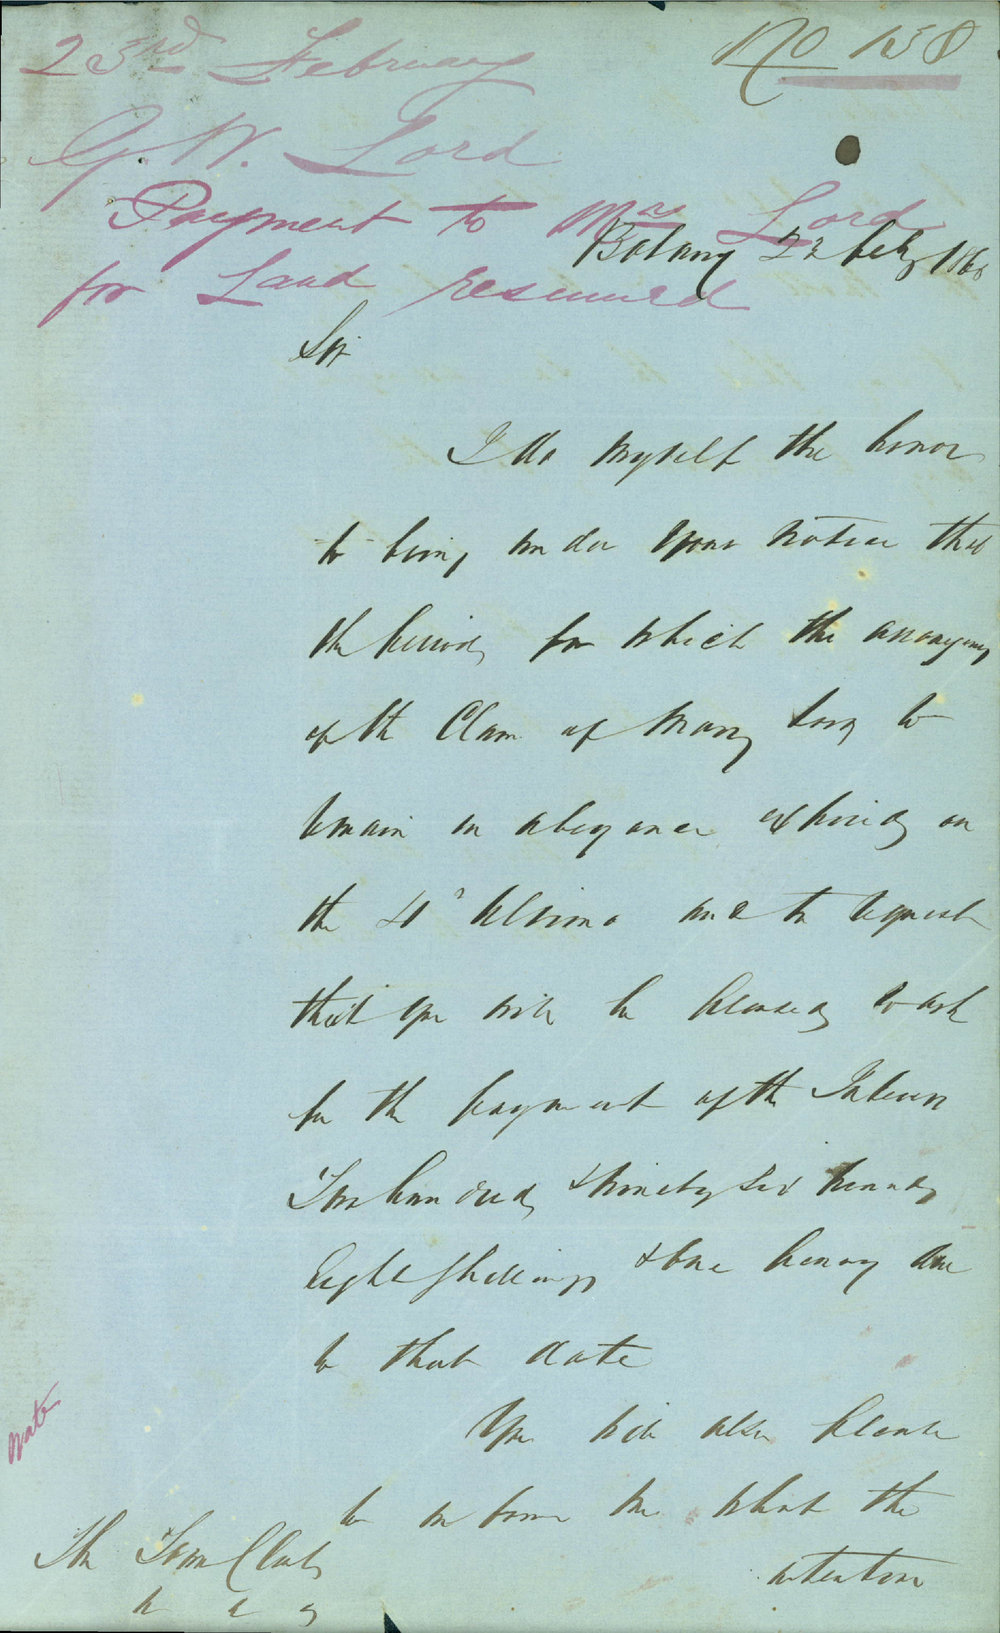 No 158
23rd February
G. W. Lord
Payment to Mrs Lord
for Land resumed
Botany 22 Feby 186
Sir
I do myself the honor
to bring under your notice that
the period for which the
of the Claim of Mary Lord to
remain in abeyance expired on
the Ultimo and to request
that you will be pleased to ask
for the payment of the Interest
Two hundred & ninety six pounds
Eight shillings & one penny due
to that date
You will also please
to inform me what the
intention
The Town Clerk
Note